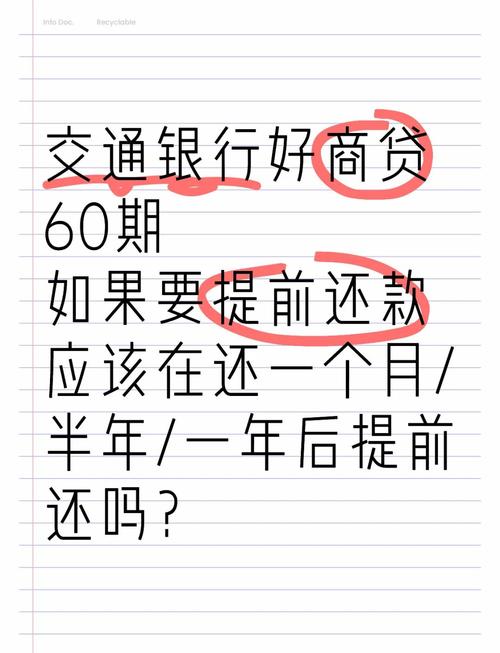 Info Doc. Recyclable
交通银行好商贷
60期
如果要提前还款
应该在还一个月/
半年/一年后提前
还吗?